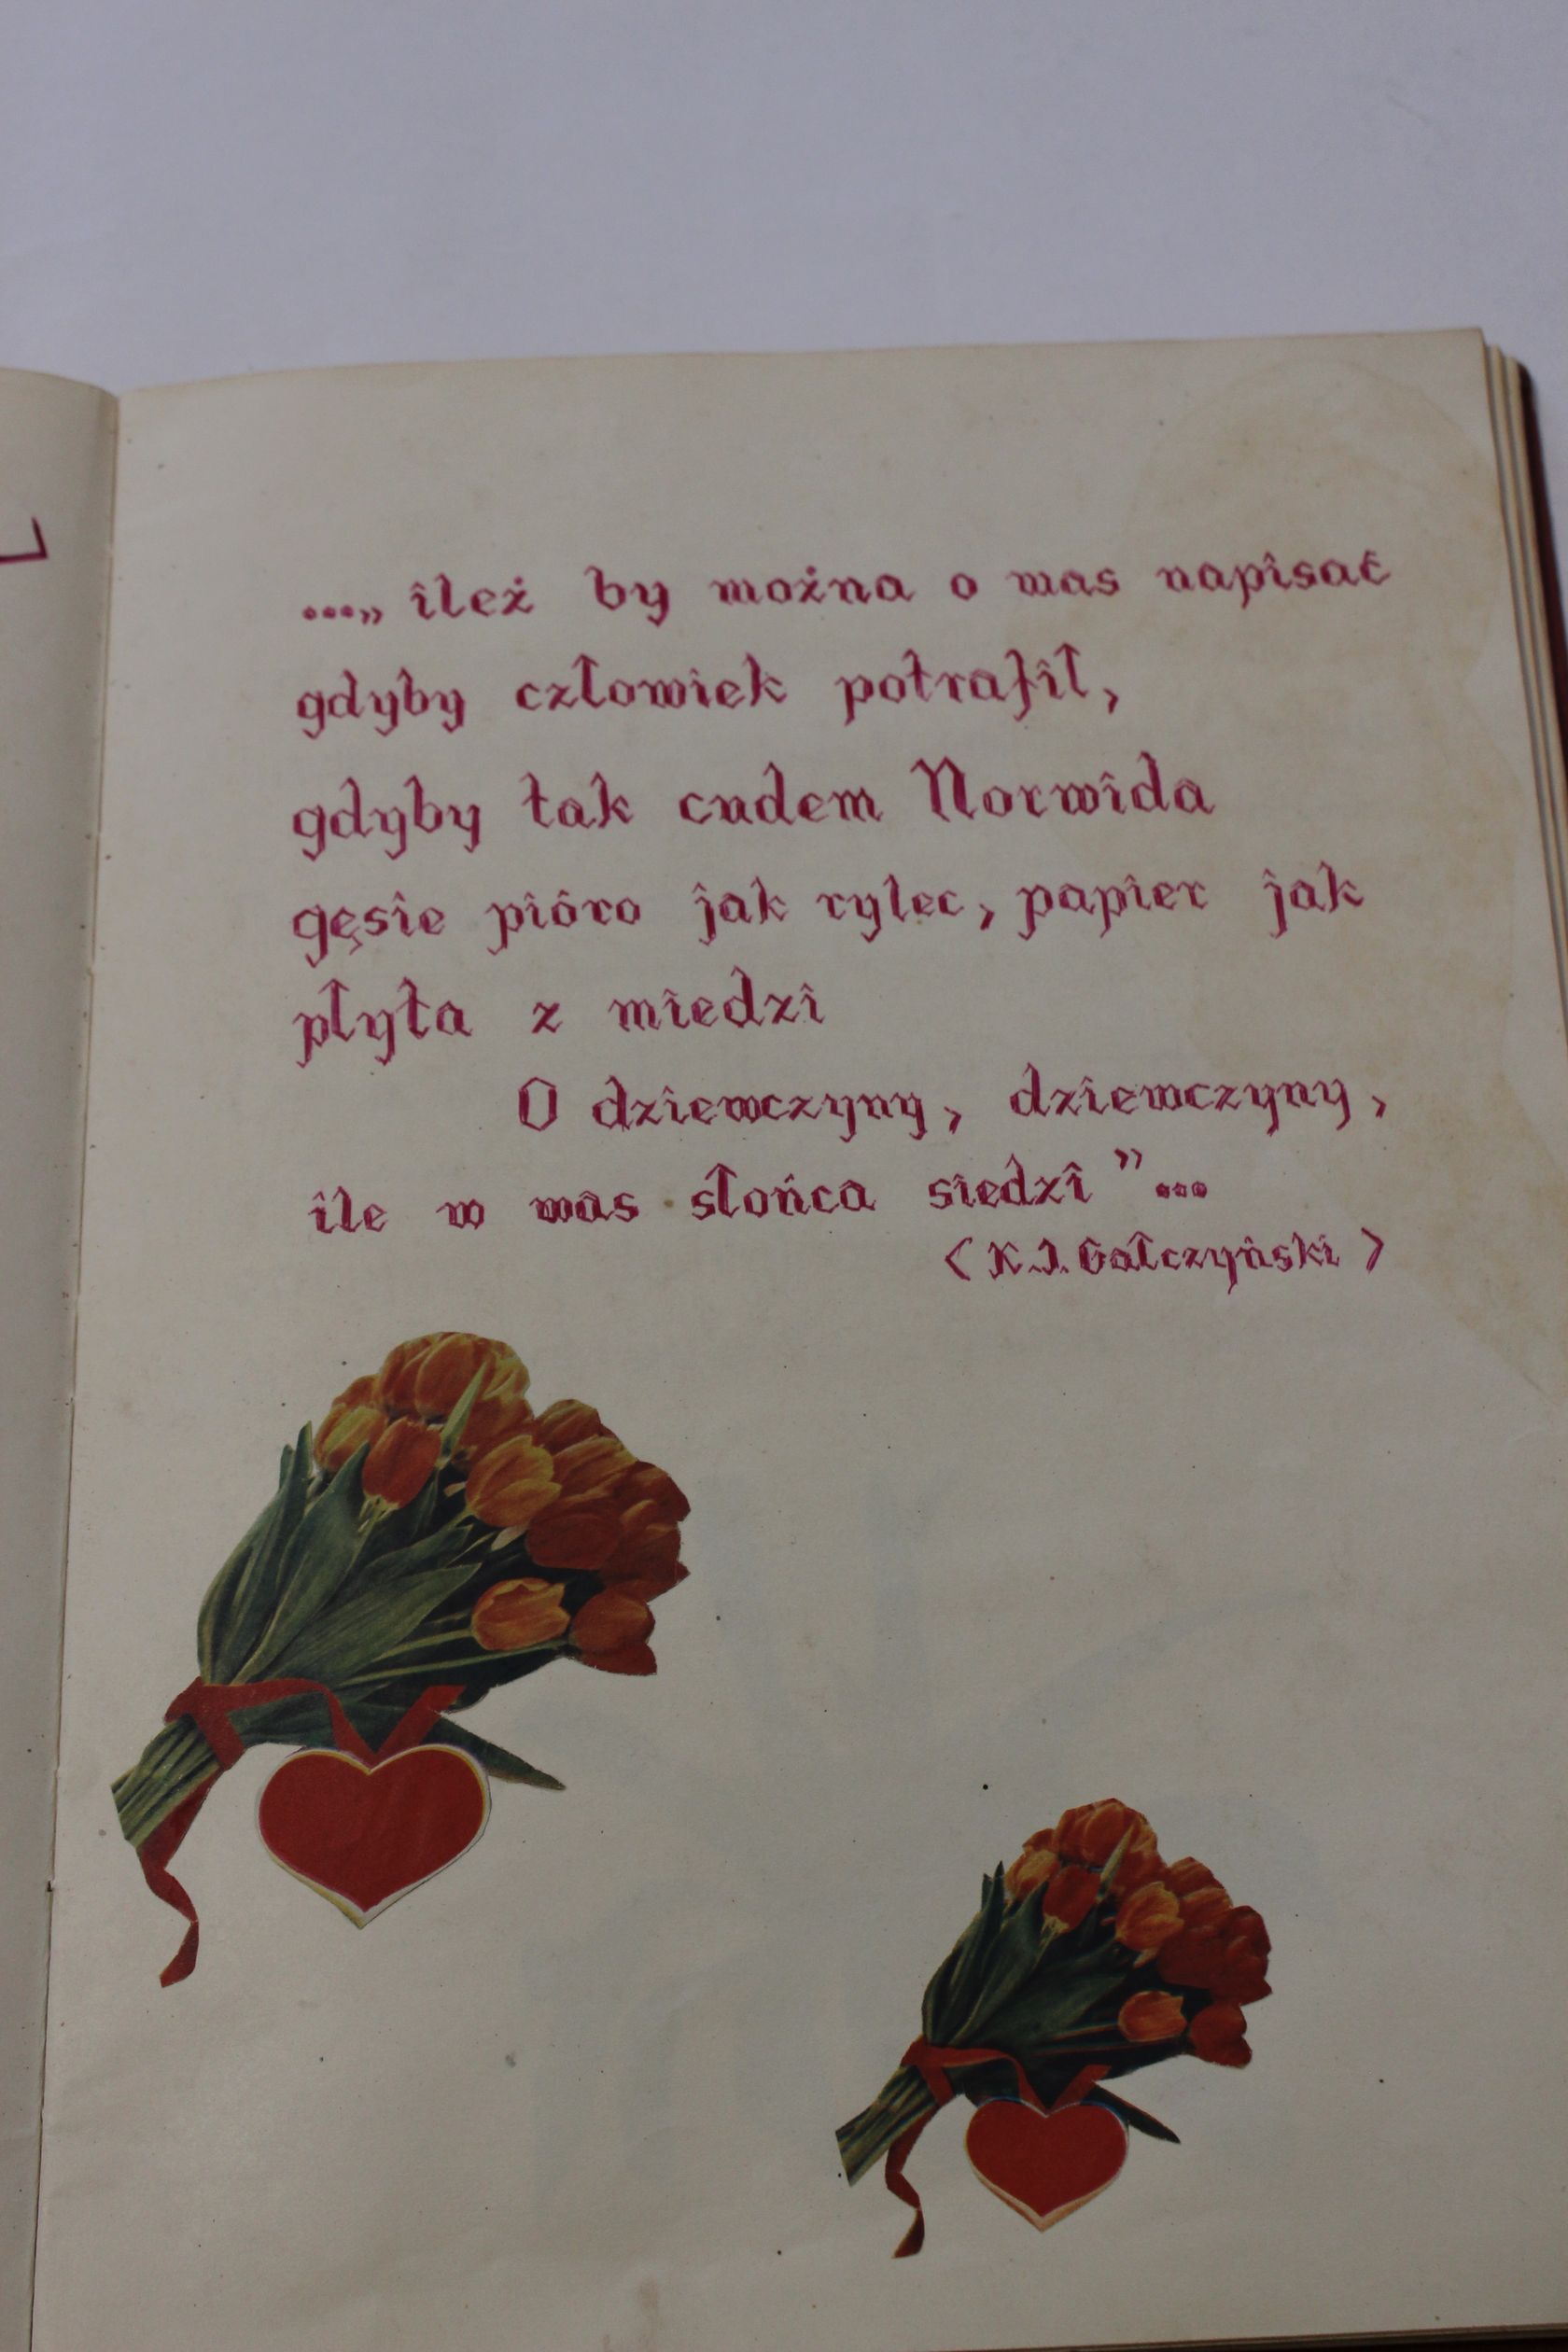 ...„ ileż by można o was napisać
gdyby człowiek potrafił,
gdyby tak cudem Norwida
gęsie pióro jak rylec, papier jak
płyta z miedzi
O dziewczyny, dziewczyny,
ile w was słońca siedzi ”...
(K.I. Gałczyński)